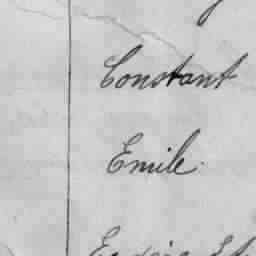 Constant
Emile.